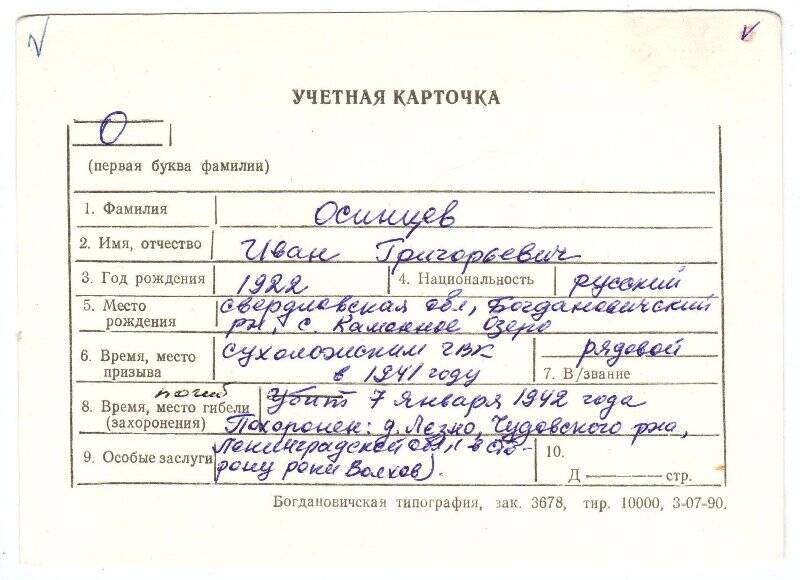 УЧЕТНАЯ КАРТОЧКА
О
(первая буква фамилии)
1. Фамилия Осинцев
2. Имя, отчество Иван Григорьевич
3. Год рождения 1922 4. Национальность русский
5. Место рождения Свердловская обл, Богдановичский
рн, с. Каменное Озеро
6. Время, место призыва Сухоложским ГВК
в 1941 году
рядовой
7. В/звание
погиб
8. Время, место гибели (захоронения) Убит 7 Января 1942 года
Похоронен: д. Лезно, Чудовского р-на,
Ленинградской обл (в сто-
рону реки Волхов).
9. Особые заслуги
10.
Д стр.
Богдановичская типография, зак. 3678, тир. 10000, 3-07-90.